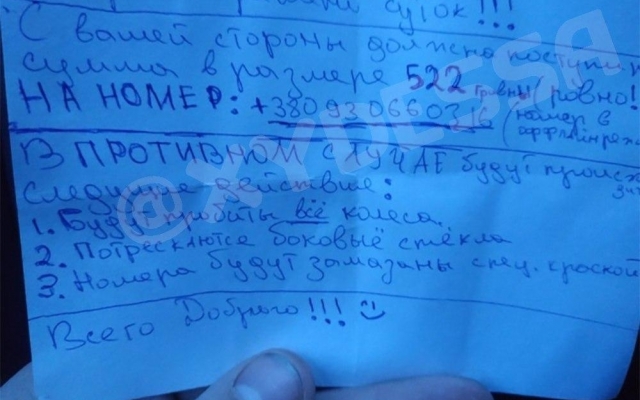 суток!!!
С вашей стороны должна поступить
сумма в размере 522 гривны (ровно!
НА НОМЕР: +380930660316 (номер в
оффлайн ре
В ПРОТИВНОМ СЛУЧАЕ будут проис
следущие действие:
1. Будут пробиты всё колеса.
2. Потрескаются боковыё стёкла
3. Номера будут замазаны спец. краской
Всего Доброго!!! :)
@XYDESSA